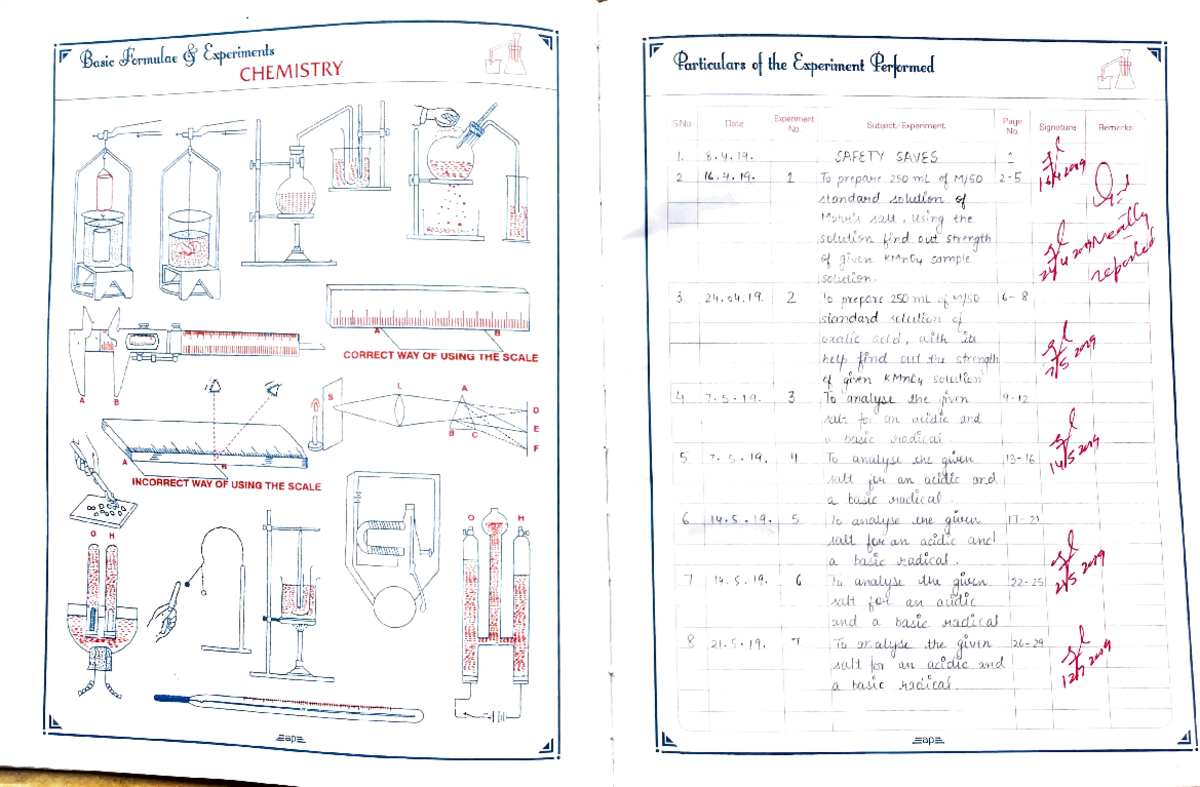 Basic Formulae & Experiments
CHEMISTRY
CORRECT WAY OF USING THE SCALE
A
B
A
B
S
L
A
B
C
D
E
F
A
B
INCORRECT WAY OF USING THE SCALE
O H
O
H
≡ap≡
Particulars of the Experiment Performed
S.No. Date Experiment No. Subject/Experiment Page No. Signature Remarks
1. 8.4.19. SAFETY SAVES 1
2 16.4.19. 1 To prepare 250 mL of M/50 2-5
standard solution of
Mohr's salt. Using the
solution find out strength
of given KMnO4 sample
solution.
16/4 2019
24/4 2019
Neatly
reported
3. 24.04.19. 2 To prepare 250 mL of M/50 6-8
standard solution of
oxalic acid, with its
help find out the strength
of given KMnO4 solution
7/5 2019
4 7.5.19. 3 To analyse the given 9-12
salt for an acidic and
a basic radical
14/5 2019
5 7.5.19. 4 To analyse the given 13-16
salt for an acidic and
a basic radical.
6 14.5.19. 5 To analyse the given 17-21
salt for an acidic and
a basic radical.
21/5 2019
7 14.5.19. 6 To analyse the given 22-25
salt for an acidic
and a basic radical
8 21.5.19. 7 To analyse the given 26-29
salt for an acidic and
a basic radical.
12/7 2019
≡ap≡